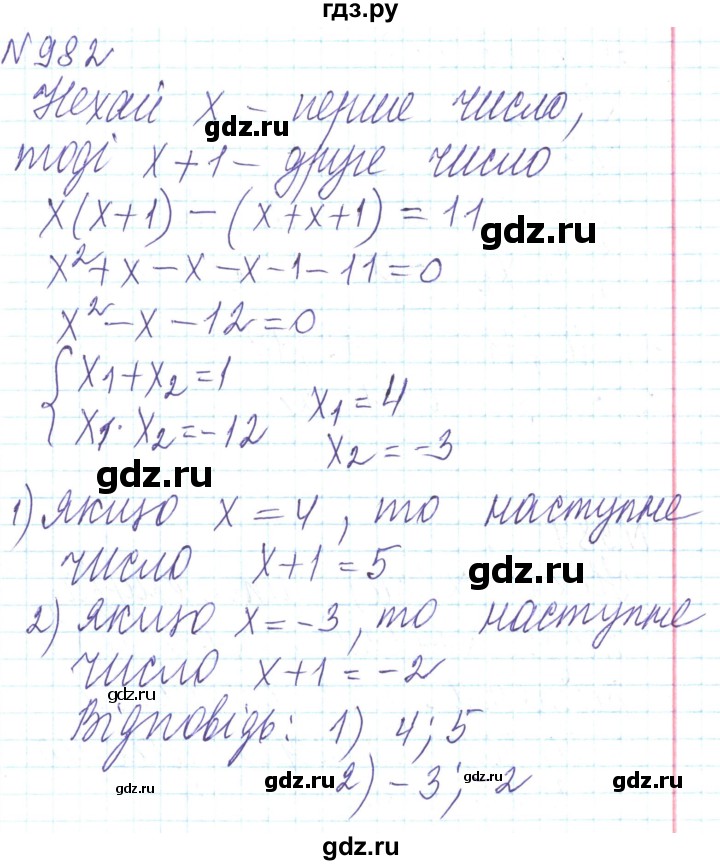 гдз.ру
№982
Нехай х – перше число,
gdz.ru
тоді х+1 – друге число
x(x+1) – (x+x+1) = 11
gdz.ru
x²+x–x–x–1–11=0
x²–x–12=0
{x₁+x₂=1
x₁·x₂=–12
x₁=4
x₂=–3
gdz.ru
1) якщо х=4, то наступне
число х+1=5
gdz.ru
2) якщо х=–3, то наступне
число х+1=–2
gdz.ru
Відповідь: 1) 4; 5
2) –3; –2
gdz.ru
gdz.ru
gdz.ru
gdz.ru
gdz.ru